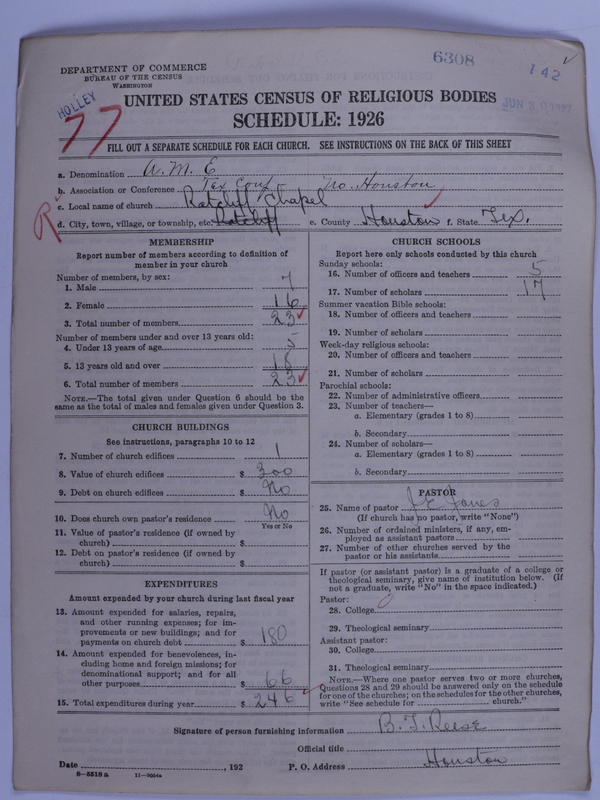 6308
142
DEPARTMENT OF COMMERCE
BUREAU OF THE CENSUS
WASHINGTON
HOLLEY
77
UNITED STATES CENSUS OF RELIGIOUS BODIES
SCHEDULE: 1926
FILL OUT A SEPARATE SCHEDULE FOR EACH CHURCH. SEE INSTRUCTIONS ON THE BACK OF THIS SHEET
a. Denomination A. M. E
b. Association or Conference Tex Conf No. Houston
c. Local name of church Ratcliff Chapel
R
d. City, town, village, or township, etc. Ratcliff e. County Houston f. State Tex.
MEMBERSHIP
Report number of members according to definition of
member in your church
Number of members, by sex:
1. Male 7
2. Female 16
3. Total number of members 23
Number of members under and over 13 years old:
4. Under 13 years of age 5
5. 13 years old and over 18
6. Total number of members 23
NOTE.—The total given under Question 6 should be
same as the total of males and females given under Question 3.
CHURCH BUILDINGS
See instructions, paragraphs 10 to 12
7. Number of church edifices 1
8. Value of church edifices $ 300
9. Debt on church edifices $ No
10. Does church own pastor's residence No
Yes or No
11. Value of pastor's residence (if owned by
church) $
12. Debt on pastor's residence (if owned by
church) $
EXPENDITURES
Amount expended by your church during last fiscal year
13. Amount expended for salaries, repairs,
and other running expenses; for im-
provements or new buildings; and for
payments on church debt $ 180
14. Amount expended for benevolences, in-
cluding home and foreign missions; for
denominational support; and for all
other purposes $ 66
15. Total expenditures during year $ 246
CHURCH SCHOOLS
Report here only schools conducted by this church
Sunday schools:
16. Number of officers and teachers 5
17. Number of scholars 17
Summer vacation Bible schools:
18. Number of officers and teachers
19. Number of scholars
Week-day religious schools:
20. Number of officers and teachers
21. Number of scholars
Parochial schools:
22. Number of administrative officers
23. Number of teachers—
a. Elementary (grades 1 to 8)
b. Secondary
24. Number of scholars—
a. Elementary (grades 1 to 8)
b. Secondary
PASTOR
25. Name of pastor Jones
(If church has no pastor, write "None")
26. Number of ordained ministers, if any, em-
ployed as assistant pastors
27. Number of other churches served by the
pastor or his assistants
If pastor (or assistant pastor) is a graduate of a college or
theological seminary, give name of institution below. (If
not a graduate, write "No" in the space indicated.)
Pastor:
28. College
29. Theological seminary
Assistant pastor:
30. College
31. Theological seminary
NOTE.—Where one pastor serves two or more churches,
Questions 28 and 29 should be answered only on the schedule
for one of the churches; on the schedules for the other churches,
write "See schedule for church."
Signature of person furnishing information B. T. Reese
Official title
Date , 192 P. O. Address Houston
8—5518a 11—9054a